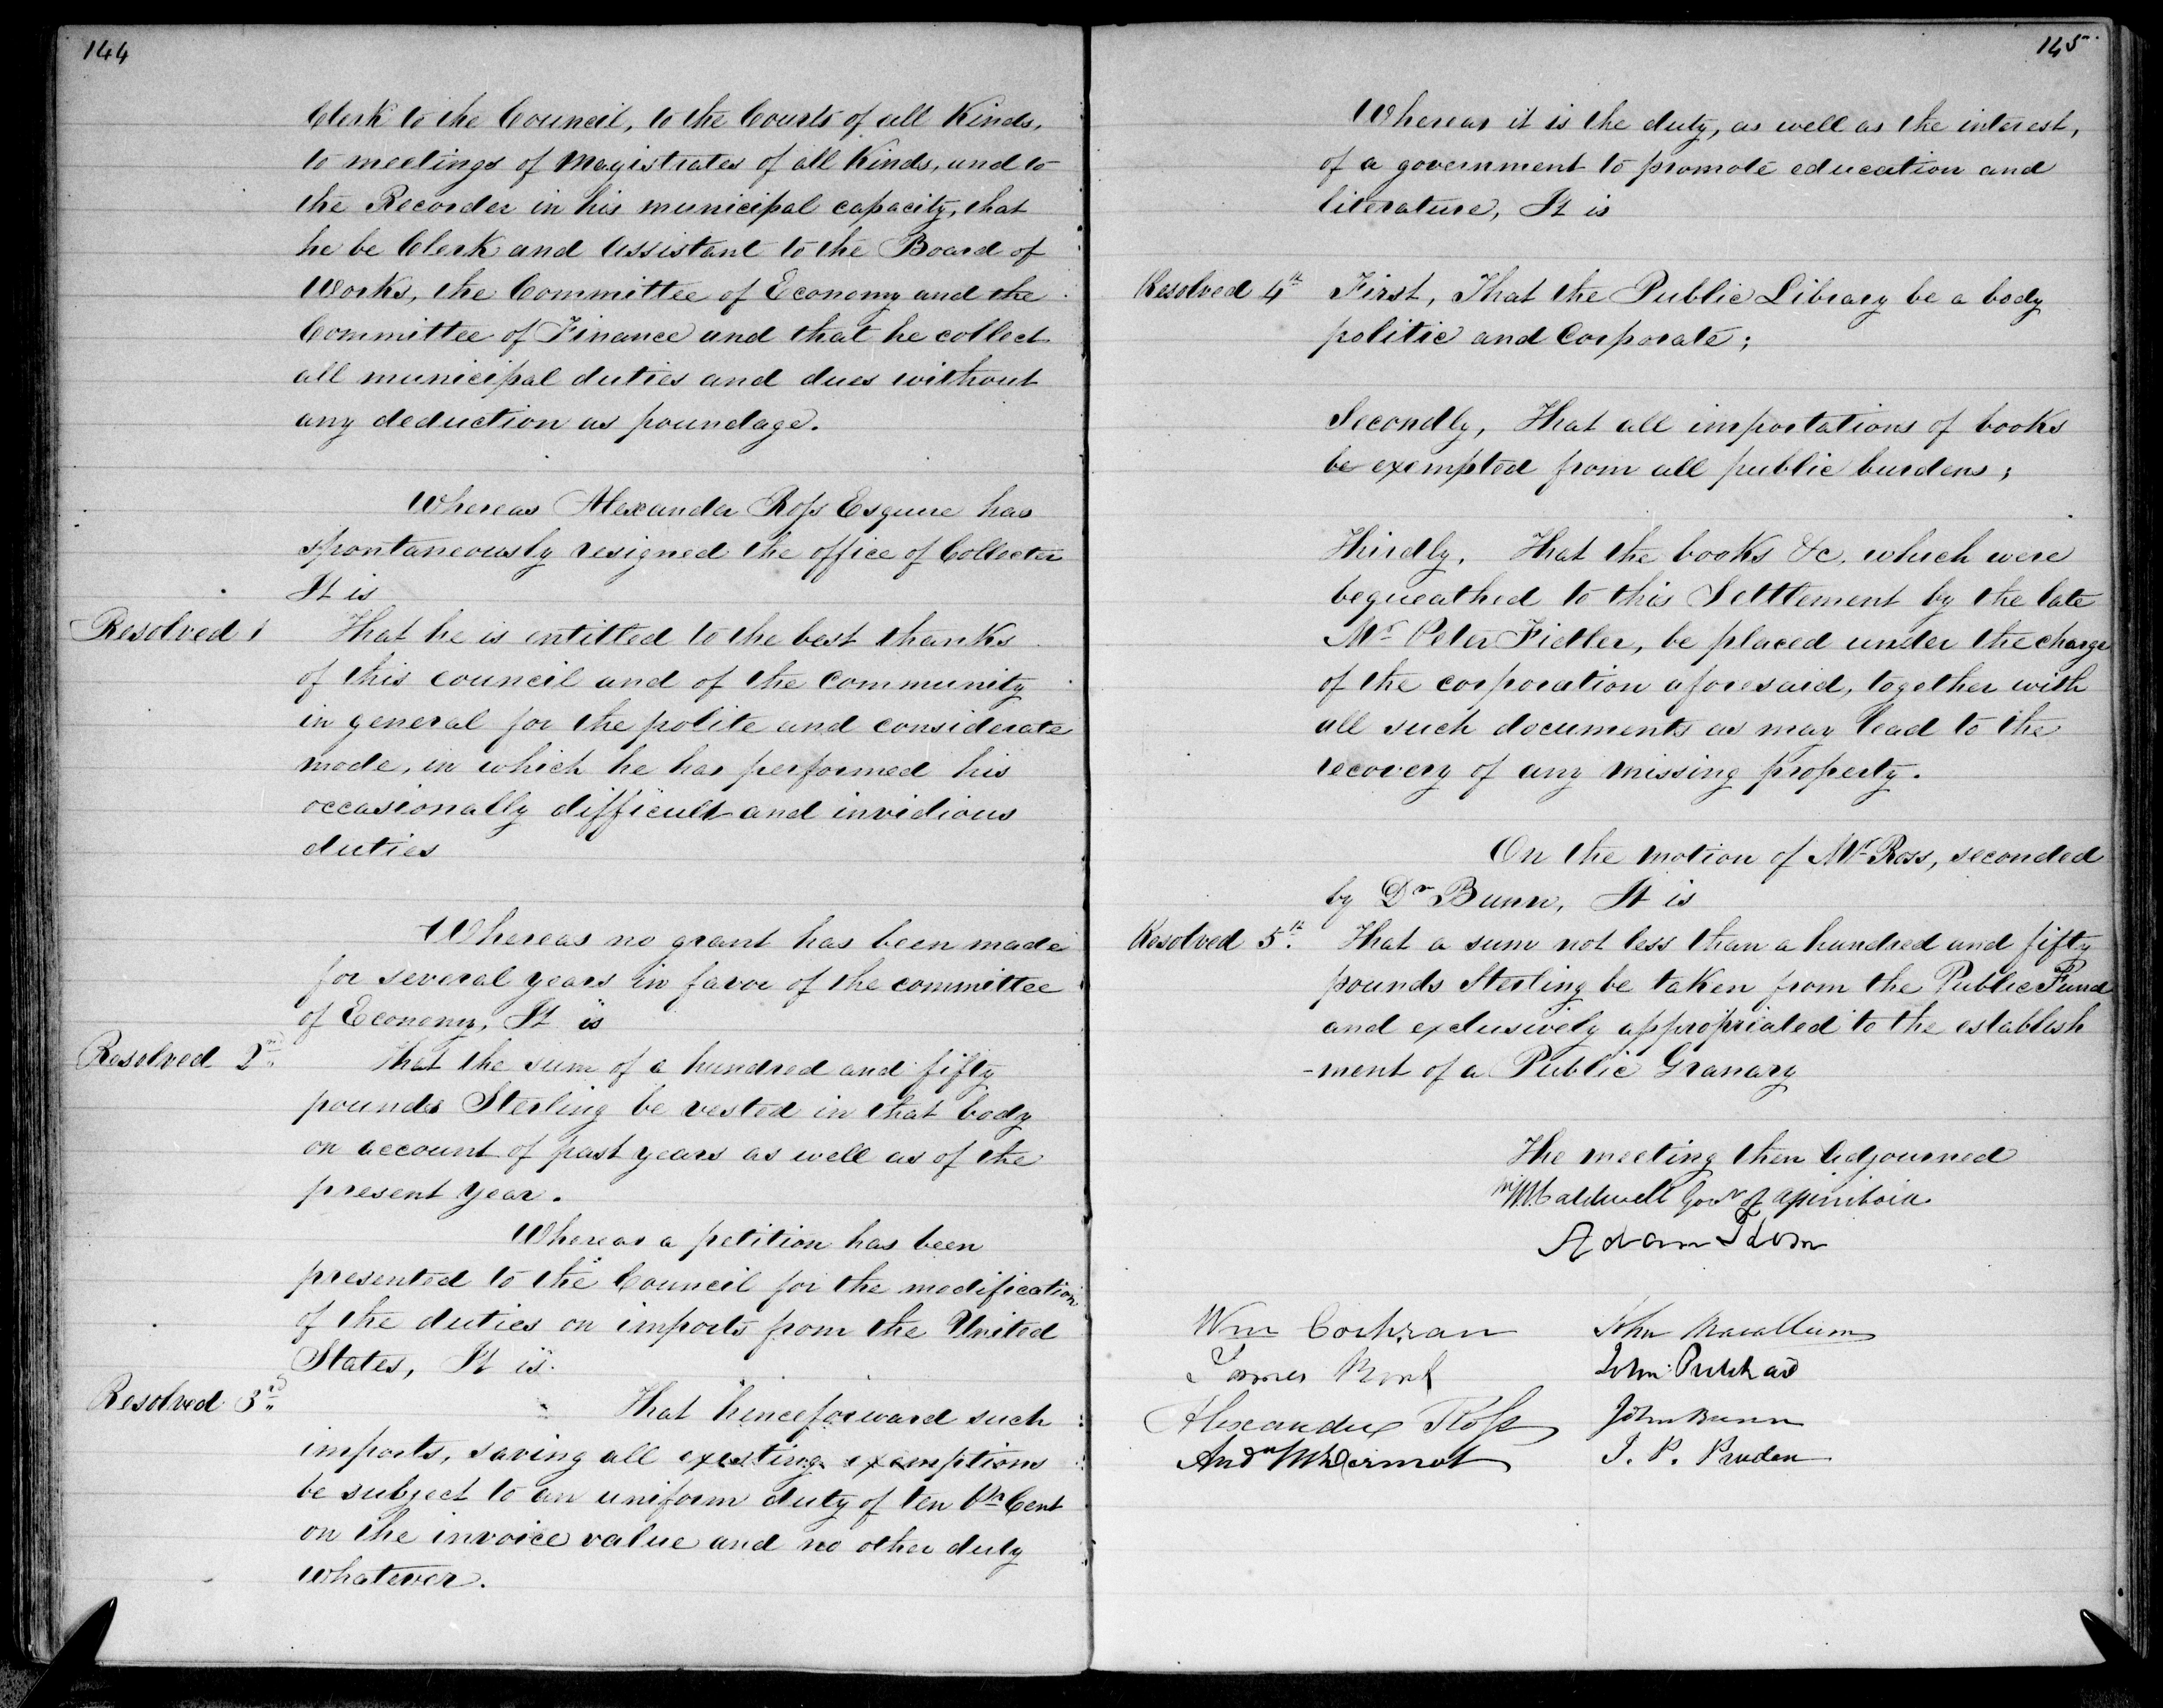 144
Clerk to the Council, to the Courts of all Kinds,
to meetings of Magistrates of all Kinds, and to
the Recorder in his municipal capacity, that
he be Clerk and Assistant to the Board of
Works, the Committee of Economy and the
Committee of Finance and that he collect
all municipal duties and dues without
any deduction as poundage.
Whereas Alexander Ross Esquire has
spontaneously resigned the office of Collector
It is
Resolved 1 That he is entitled to the best thanks
of this council and of the community
in general for the polite and considerate
mode, in which he has performed his
occasionally difficult and invidious
duties
Whereas no grant has been made
for several years in favor of the committee
of Economy, It is
Resolved 2nd That the sum of a hundred and fifty
pounds Sterling be vested in that body
on account of past years as well as of the
present year.
Whereas a petition has been
presented to the Council for the modification
of the duties on imports from the United
States, It is
Resolved 3rd That henceforward such
imports, saving all existing exemptions
be subject to an uniform duty of ten Pr Cent
on the invoice value and no other duty
whatever.
145
Whereas it is the duty, as well as the interest,
of a government to promote education and
literature, It is
Resolved 4th First, That the Public Library be a body
politic and Corporate;
Secondly, That all importations of books
be exempted from all public burdens;
Thirdly, That the books &c. which were
bequeathed to this Settlement by the late
Mr Peter Fidler, be placed under the charge
of the corporation aforesaid, together with
all such documents as may lead to the
recovery of any missing property.
On the motion of Mr Ross, seconded
by Dr Bunn, It is
Resolved 5th That a sum not less than a hundred and fifty
pounds Sterling be taken from the Public Fund
and exclusively appropriated to the establish
-ment of a Public Granary
The meeting then Adjourned
W. Caldwell Govr of Assiniboia
Adam Thom
Wm Cochran John Macallum
James John Pritchard
Alexander Ross John Bunn
Andw McDermot J. P. Pruden